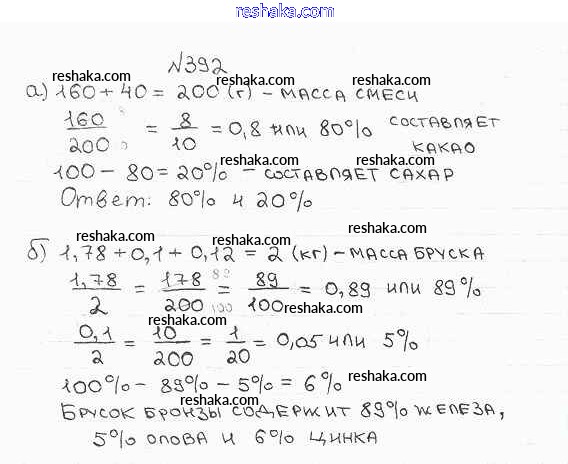 reshaka.com
№392
reshaka.com reshaka.com reshaka.com
а) 160 + 40 = 200 (г) – МАССА СМЕСИ
160/200 = 8/10 = 0,8 или 80% СОСТАВЛЯЕТ КАКАО
reshaka.com reshaka.com
reshaka.com reshaka.com
100 – 80 = 20% – СОСТАВЛЯЕТ САХАР
reshaka.com reshaka.com reshaka.com
Ответ: 80% и 20%
reshaka.com reshaka.com
б) 1,78 + 0,1 + 0,12 = 2 (кг) – МАССА БРУСКА
reshaka.com reshaka.com
1,78/2 = 178/200 = 89/100 = 0,89 или 89%
reshaka.com reshaka.com
0,1/2 = 10/200 = 1/20 = 0,05 или 5%
reshaka.com reshaka.com
100% – 89% – 5% = 6%
reshaka.com reshaka.com
БРУСОК БРОНЗЫ СОДЕРЖИТ 89% ЖЕЛЕЗА,
5% ОЛОВА И 6% ЦИНКА